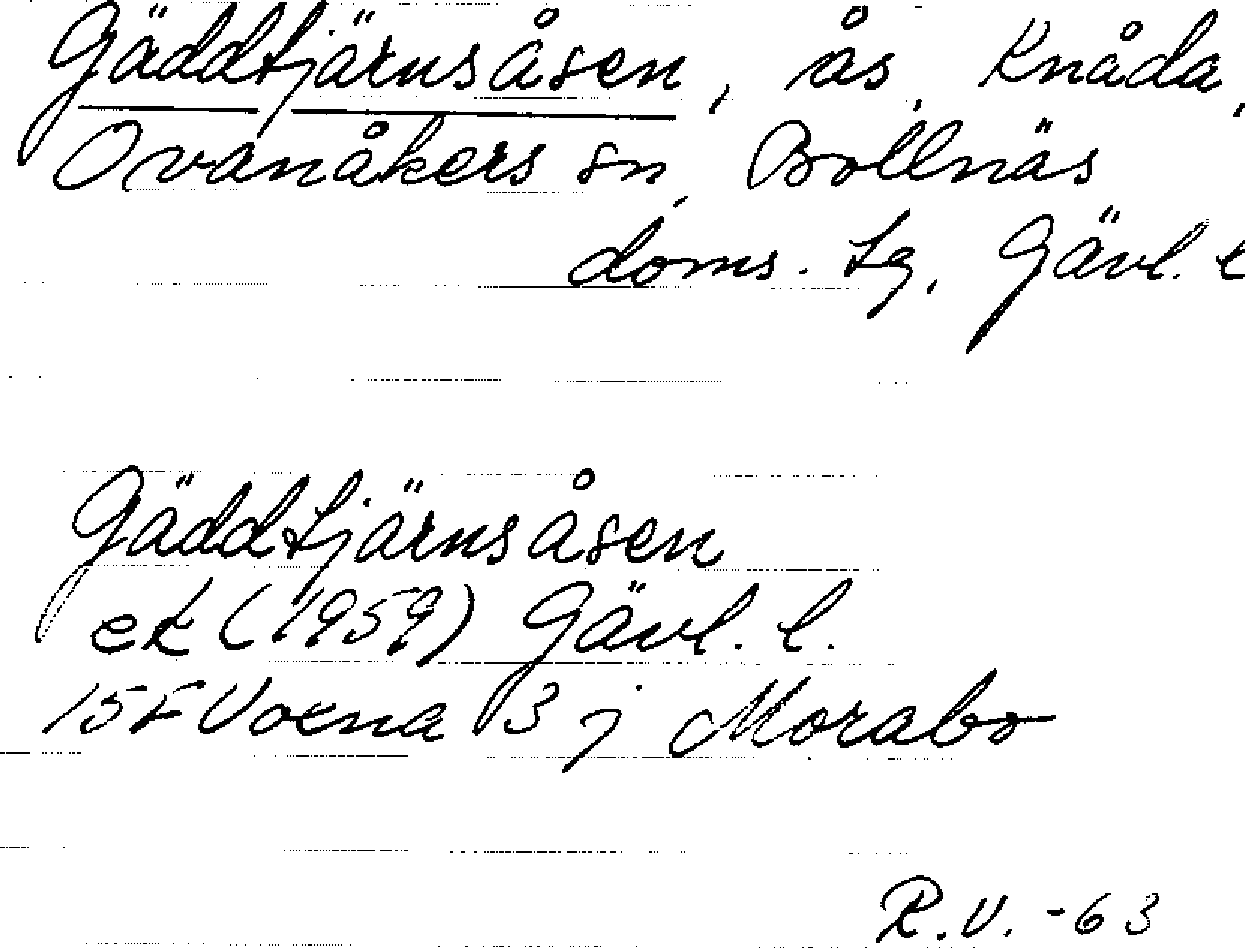 Gäddtjärnsåsen, ås, Knåda,
Ovanåkers sn, Bollnäs
doms. tg, Gävl. l
Gäddtjärnsåsen
ek (1959) Gävl. l.
15F Voxna 3 j Morabo
R.V. -63